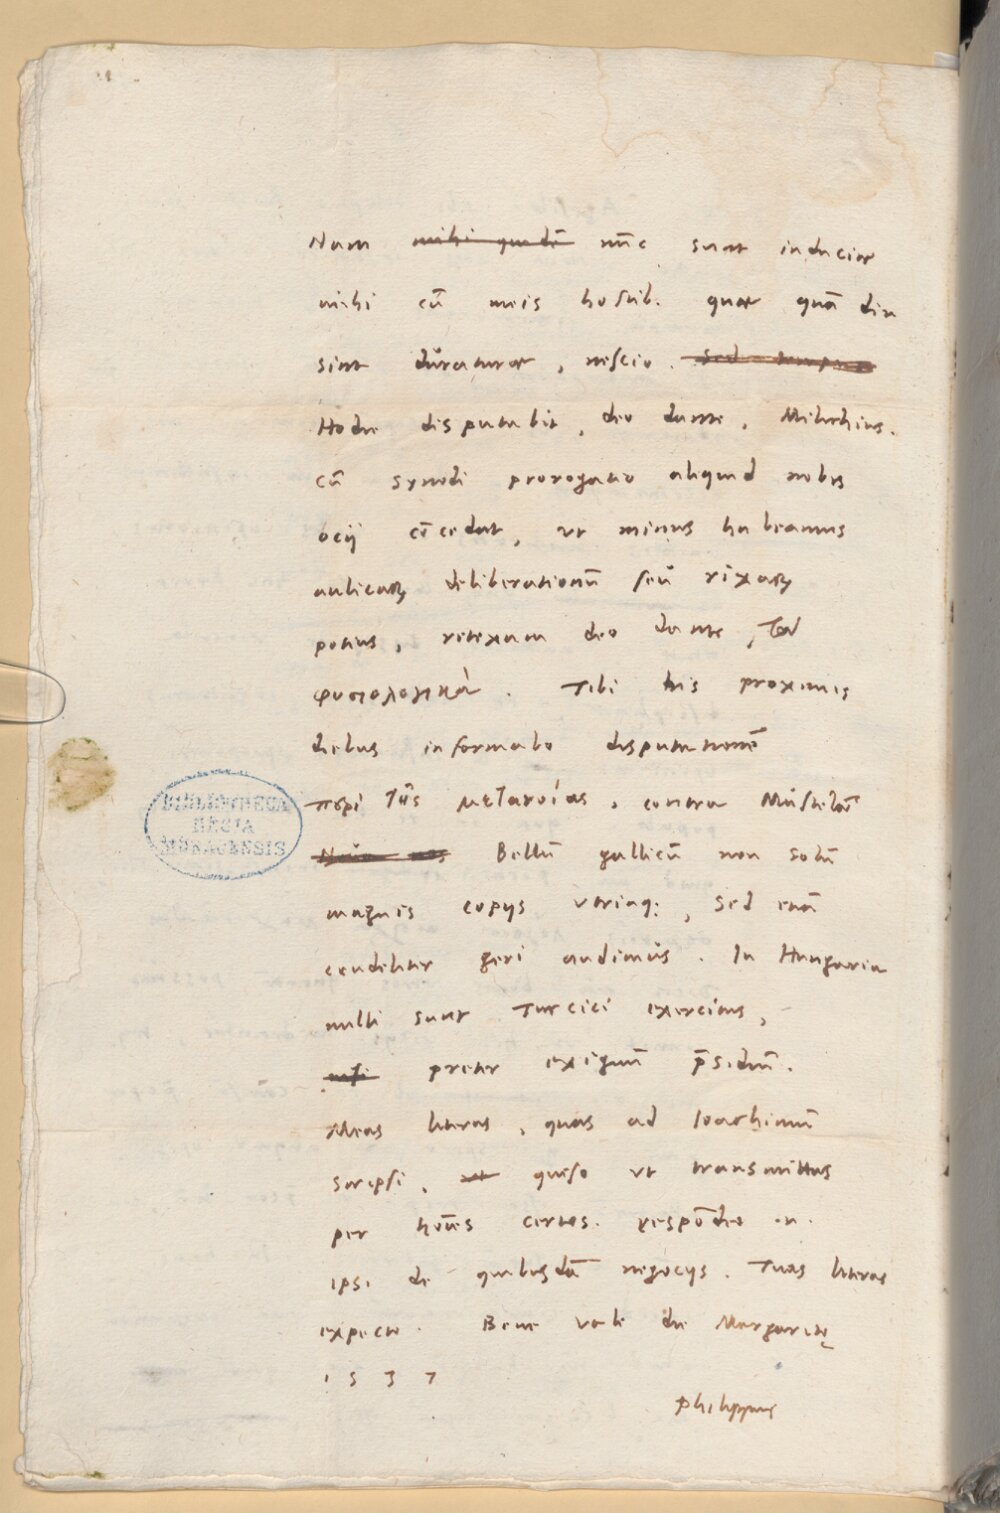 Nam mihi quidē nūc sunt induciæ
mihi cū meis hostib. quæ quā diu
sint dŭraturæ, nescio. Sed tempus
Hodie disputabit, deo dante, Milichius.
cū synodi prorogatio aliquid nobis
ocij cōcedat, ut minus habeamus
aulicarꝝ deliberationū seŭ rixarꝝ
potius, retexam deo dante, τὰ
φυσιολογικὰ. Tibi his proximis
diebus informabo disputationē
περὶ τῆς μετανοίας, contra
Bellū gallicū non solū
magnis copijs utrinqꝫ, sed etiā
crudeliter geri audimus. In Hungaria
nulli sunt Turcici exercitus,
nisi preter exiguū p̄sidiū.
Meas literas, quas ad Ioachimū
scripsi, ut quęso ut transmittas
per hoīes certos. respōdeo .n.
ipsi de quibusdā negocijs. Tuas literas
expecto. Bene vale die Margaritę
1537
Philippus
BIBLIOTHECA
REGIA
MONACENSIS